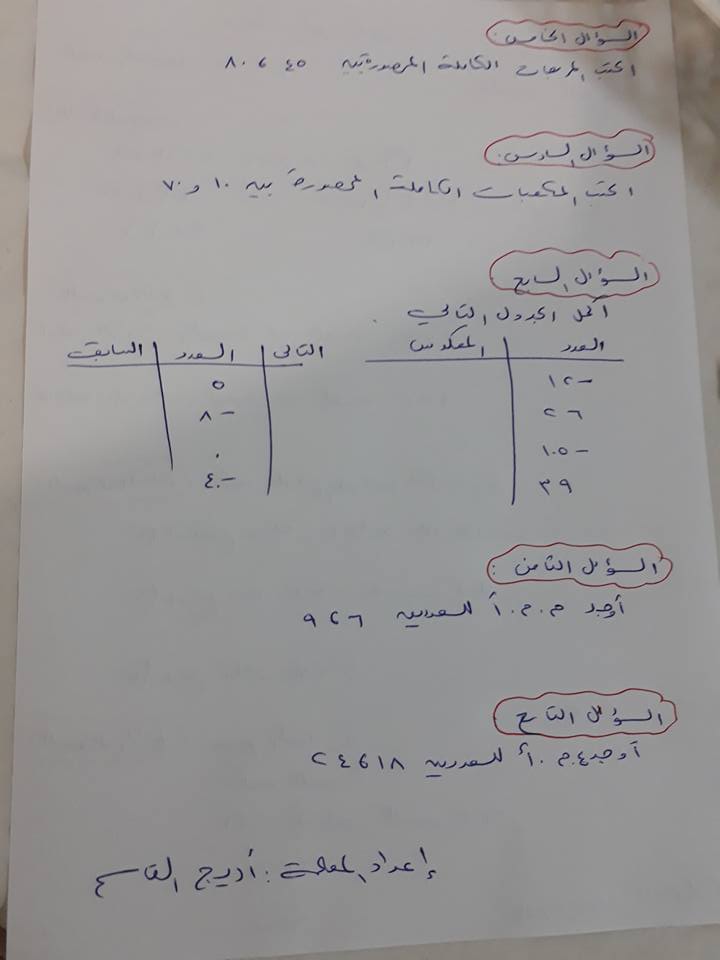 السؤال الخامس:
اكتب المربعات الكاملة المحصورة بين ٤٥ ، ٨٠
السؤال السادس:
اكتب المكعبات الكاملة المحصورة بين ١٠ و ٧٠
السؤال السابع
أكمل الجدول التالي .
العدد المعكوس
-١٢
٢٦
-١٠٥
٣٩
التالي العدد السابق
٥
-٨
٠
-٤٠
السؤال الثامن:
أوجد م.م.أ للعددين ٦ ، ٩
السؤال التاسع
أوجد ع.م.أ للعددين ١٨ ، ٢٤
إعداد المعلمة: أريج القاسم